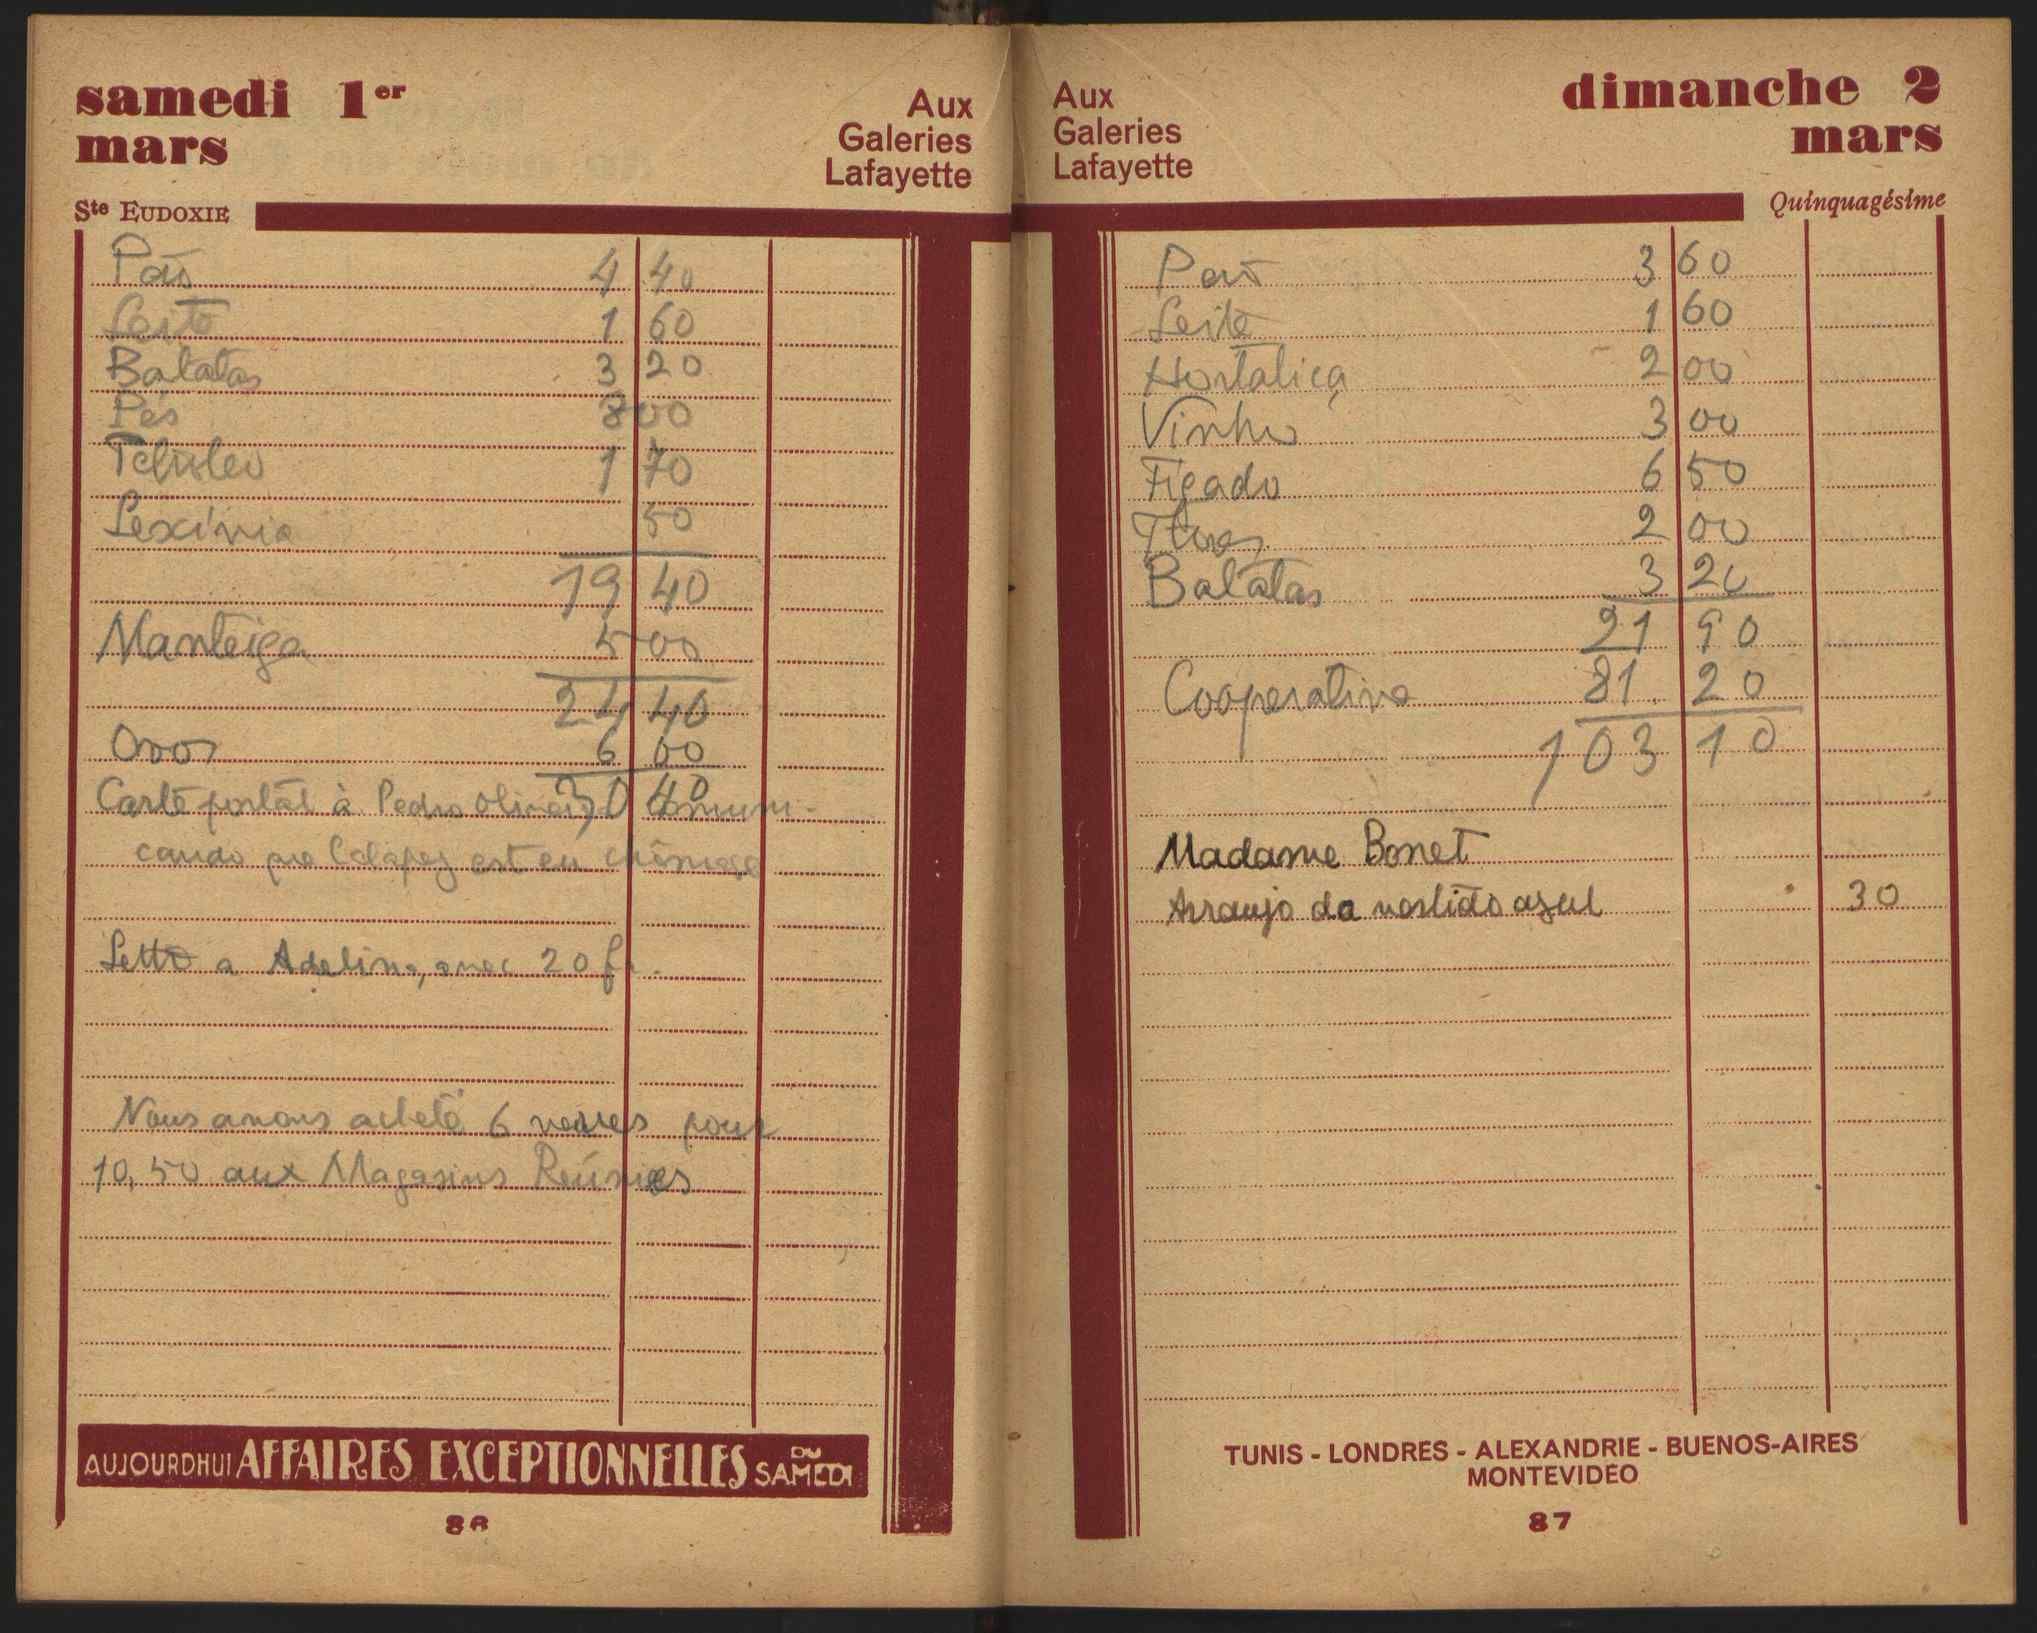 samedi 1er
mars
Aux
Galeries
Lafayette
Ste EUDOXIE
Pão 4 40
Leite 1 60
Batatas 3 20
Pés 8 00
Petroleo 1 70
Lexívia 50
19 40
Manteiga 5 00
24 40
Ovos 6 00
30 40
Carte postal à Pedro Oliveira, comuni-
cando que Calapez est en chômage
Lettre a Adelina, avec 20 fr.
Nous avons acheté 6 verres pour
10,50 aux Magasins Reúnies
AUJOURDHUI AFFAIRES EXCEPTIONNELLES DU SAMEDI
86
dimanche 2
mars
Aux
Galeries
Lafayette
Quinquagésime
Pão 3 60
Leite 1 60
Hortaliça 2 00
Vinho 3 00
Figado 6 50
Flores 2 00
Batatas 3 20
21 90
Cooperative 81 20
103 10
Madame Bonet
Arranjo da vestido azul 30
TUNIS - LONDRES - ALEXANDRIE - BUENOS-AIRES
MONTEVIDEO
87